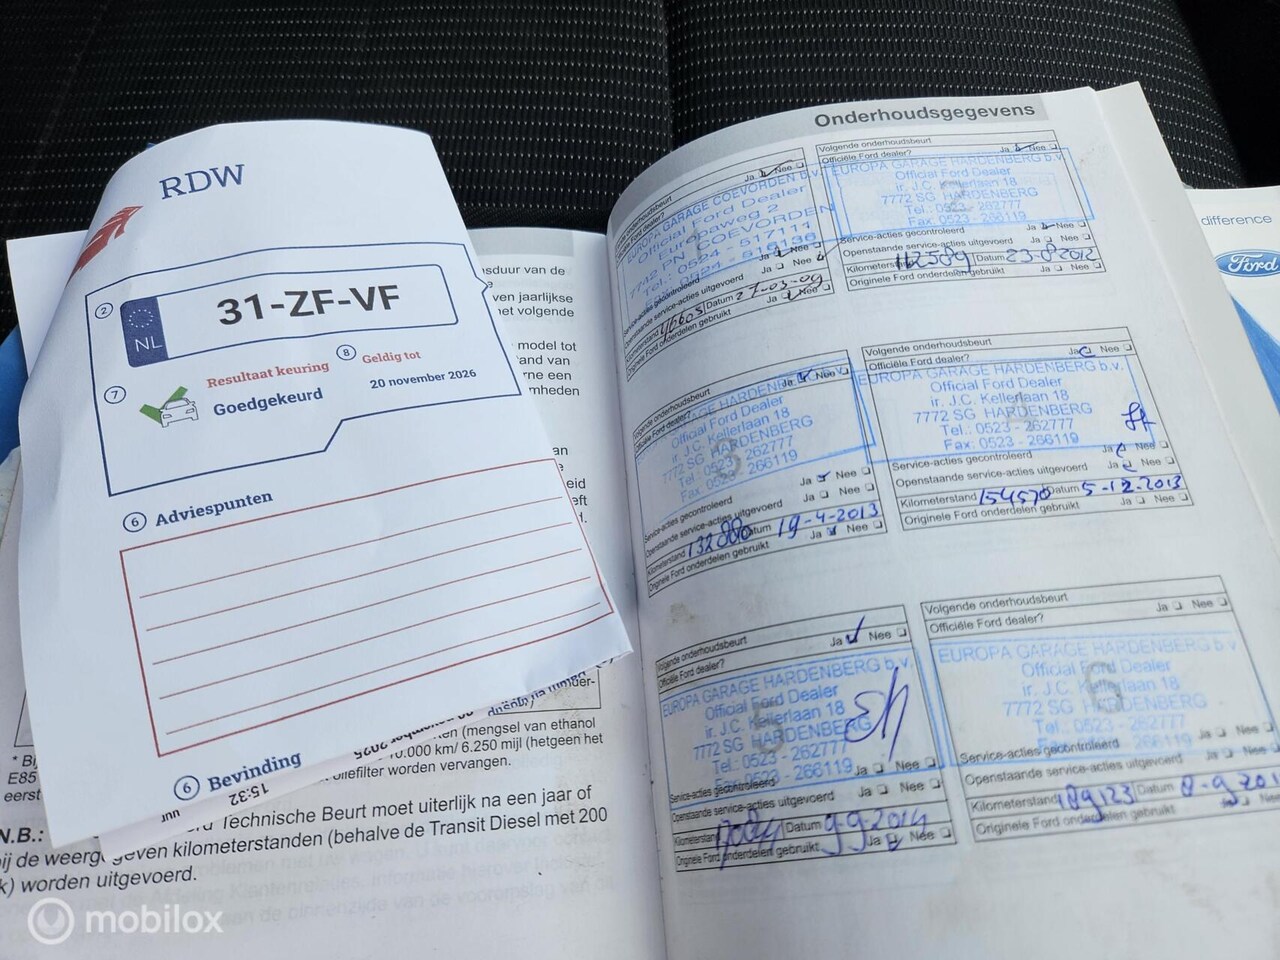 RDW
2
NL
31-ZF-VF
7
Resultaat keuring
Goedgekeurd
8
Geldig tot
20 november 2026
6 Adviespunten
6 Bevinding
15:32
duur van de
ven jaarlijkse
volgende
model tot
and van
rne een
mheden
an
eid
(mengsel van ethanol
10.000 km/ 6.250 mijl (hetgeen het
oliefilter worden vervangen.
E85
eerst
N.B.:
Technische Beurt moet uiterlijk na een jaar of
ij de weergegeven kilometerstanden (behalve de Transit Diesel met 200
k) worden uitgevoerd.
Onderhoudsgegevens
Ja Nee
Officiële Ford dealer?
EUROPA GARAGE COEVORDEN b.v.
Official Ford Dealer
Europaweg 2
7742 PN COEVORDEN
Tel.: 0524 - 517111
Service-acties gecontroleerd
Ja Nee
Datum 27-03-09
Originele Ford onderdelen gebruikt Ja Nee
Volgende onderhoudsbeurt
Officiële Ford dealer? Ja Nee
EUROPA GARAGE HARDENBERG b.v.
Official Ford Dealer
ir. J.C. Kellerlaan 18
7772 SG HARDENBERG
Tel.: 0523 - 262777
Fax: 0523 - 266119
Service-acties gecontroleerd Ja Nee
Openstaande service-acties uitgevoerd Ja Nee
Kilometerstand 112589 Datum 23-08-2012
Originele Ford onderdelen gebruikt Ja Nee
Volgende onderhoudsbeurt
Officiële Ford dealer? Ja Nee
GARAGE HARDENBERG
Official Ford Dealer
ir. J.C. Kellerlaan 18
7772 SG HARDENBERG
Tel.: 0523 - 262777
Fax: 0523 - 266119
3
Service-acties gecontroleerd Ja Nee
Openstaande service-acties uitgevoerd Ja Nee
Kilometerstand Datum 19-4-2013
Originele Ford onderdelen gebruikt Ja Nee
Volgende onderhoudsbeurt
Officiële Ford dealer? Ja Nee
EUROPA GARAGE HARDENBERG b.v.
Official Ford Dealer
ir. J.C. Kellerlaan 18
7772 SG HARDENBERG
Tel.: 0523 - 262777
Fax: 0523 - 266119
Service-acties gecontroleerd Ja Nee
Openstaande service-acties uitgevoerd Ja Nee
Kilometerstand 154570 Datum 5-12-2013
Originele Ford onderdelen gebruikt Ja Nee
Volgende onderhoudsbeurt
Officiële Ford dealer? Ja Nee
EUROPA GARAGE HARDENBERG b.v.
Official Ford Dealer
ir. J.C. Kellerlaan 18
7772 SG HARDENBERG
Tel.: 0523 - 262777
Fax: 0523 - 266119
Service-acties gecontroleerd Ja Nee
Openstaande service-acties uitgevoerd Ja Nee
Kilometerstand Datum 9-9-2014
Originele Ford onderdelen gebruikt Ja Nee
Volgende onderhoudsbeurt
Officiële Ford dealer? Ja Nee
EUROPA GARAGE HARDENBERG b.v.
Official Ford Dealer
ir. J.C. Kellerlaan 18
7772 SG HARDENBERG
Tel.: 0523 - 262777
Fax: 0523 - 266119
6
Service-acties gecontroleerd Ja Nee
Openstaande service-acties uitgevoerd Ja Nee
Kilometerstand 189123 Datum 8-9-201
Originele Ford onderdelen gebruikt Ja Nee
difference
Ford
mobilox